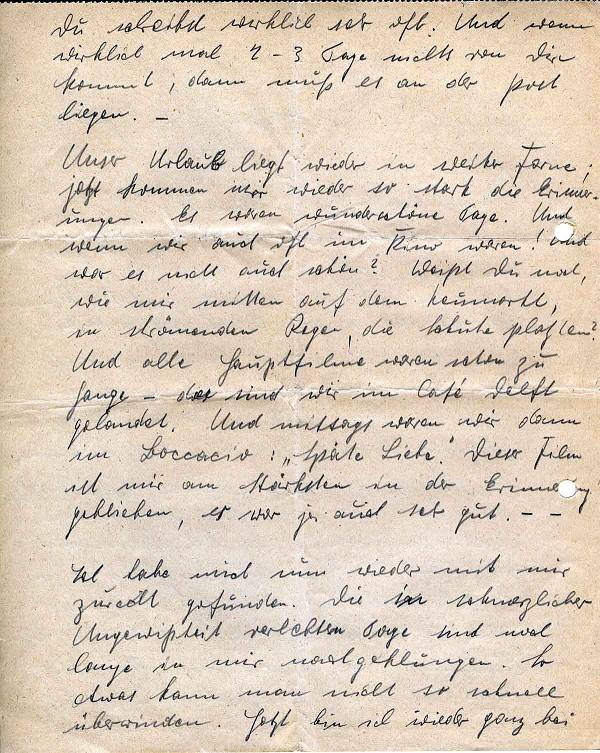 Du schreibst wirklich sehr oft. Und wenn
wirklich mal 2 - 3 Tage nichts von Dir
kommt, dann muß es an der Post
liegen. —
Unser Urlaub liegt wieder in weiter Ferne;
jetzt kommen mir wieder so stark die Erinner-
ungen. Es waren wunderschöne Tage. Und
wenn wir auch oft im Kino waren! Und
war es nicht auch schön? Weißt Du noch,
wie mir mitten auf dem Neumarkt,
in strömenden Regen, die Schuhe platzten?
Und alle Hauptfilme waren schon zu
Gange — da sind wir im Café Delft
gelandet. Und mittags waren wir dann
im Boccacio: „Späte Liebe." Dieser Film
ist mir am stärksten in der Erinnerung
geblieben, er war ja auch sehr gut. — —
Ich habe mich nun wieder mit mir
zurecht gefunden. Die in schmerzlicher
Ungewißheit verlebten Tage sind noch
lange in mir nachgeklungen. So
etwas kann man nicht so schnell
überwinden. Jetzt bin ich wieder ganz bei